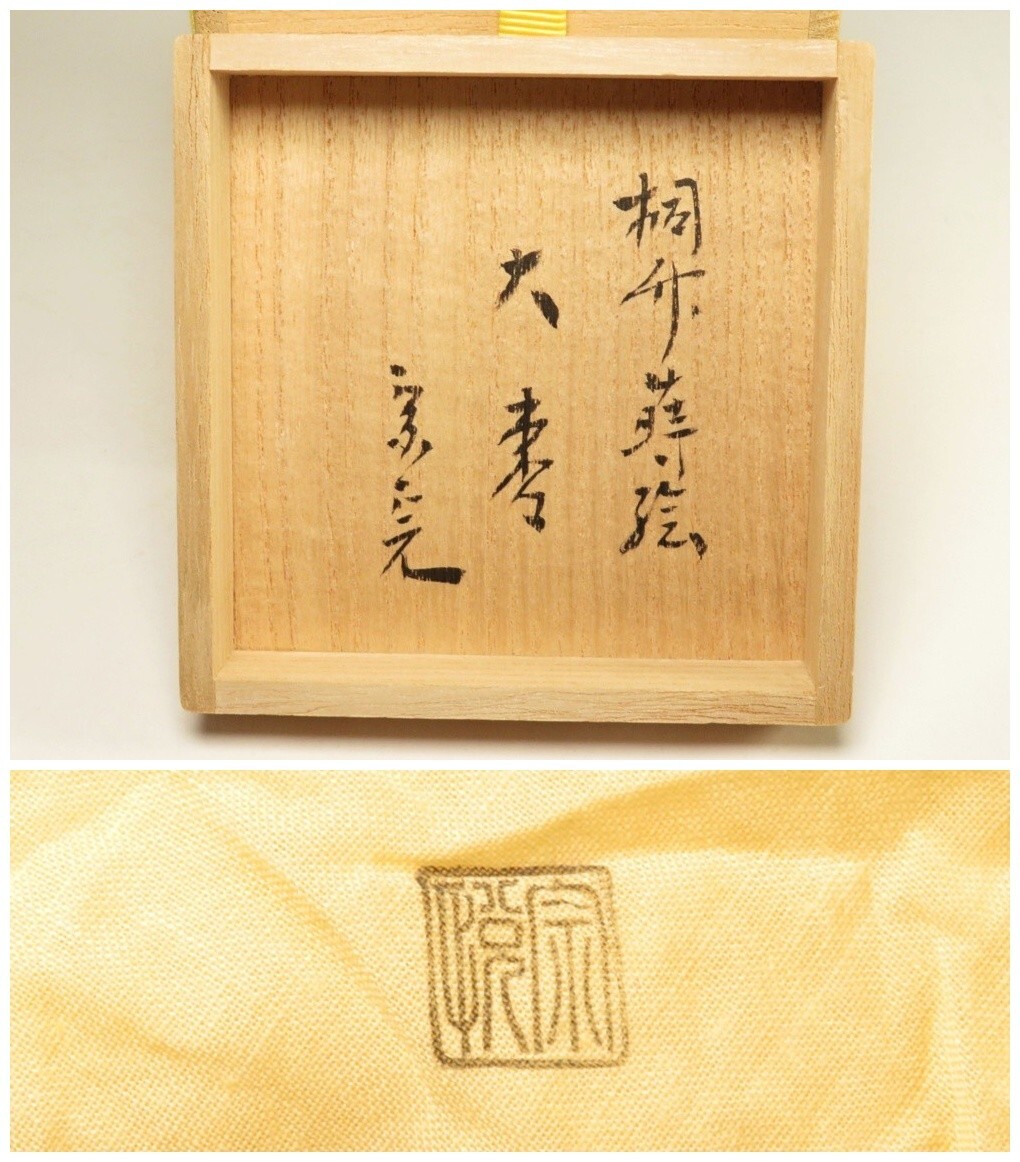 桐竹蒔絵
大棗
宗完
宗悦